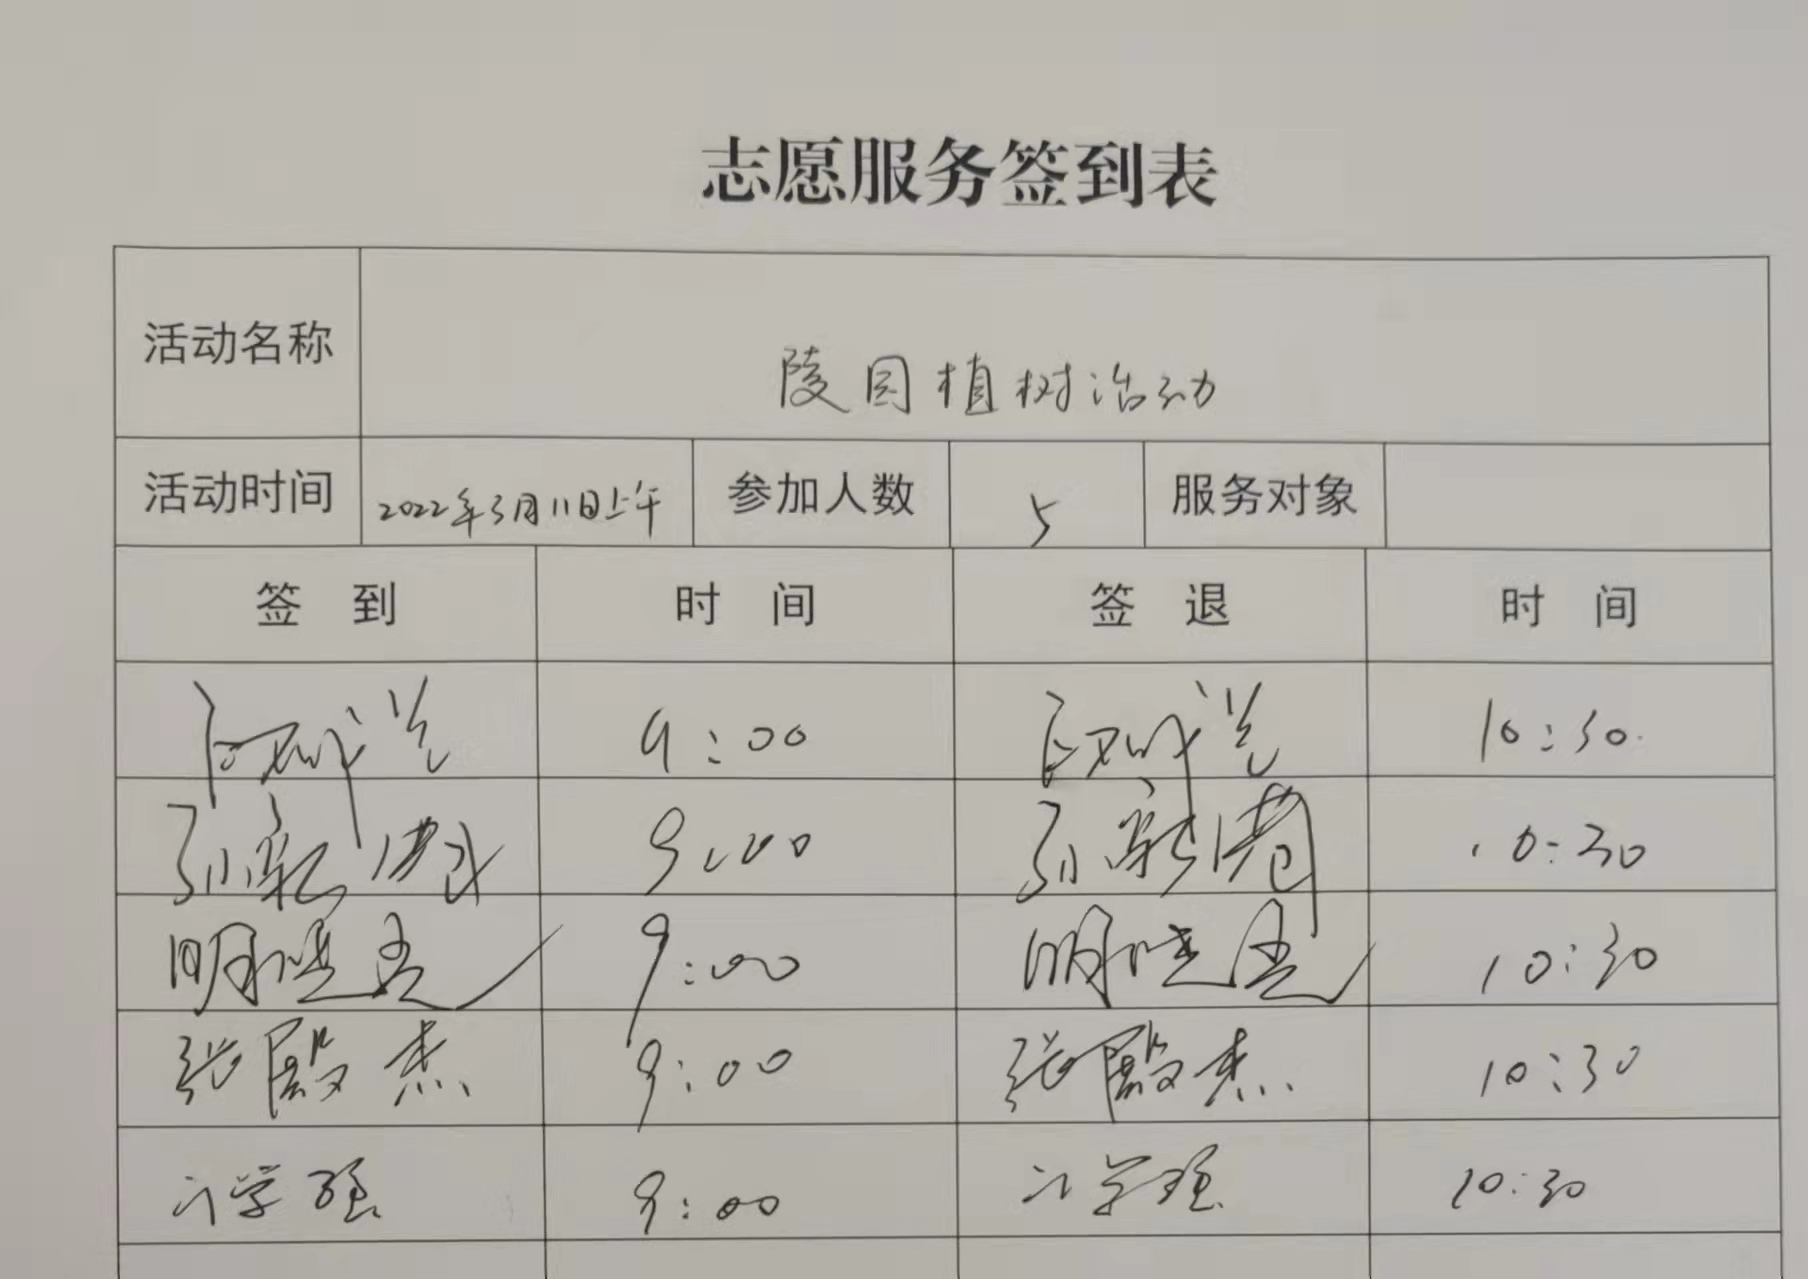 志愿服务签到表
活动名称 陵园植树活动
活动时间 2022年3月11日上午 参加人数 5 服务对象
签 到 时 间 签 退 时 间
9:00 10:30
9:00 10:30
明晓 9:00 明晓 10:30
张殿杰 9:00 张殿杰 10:30
学强 9:00 学强 10:30